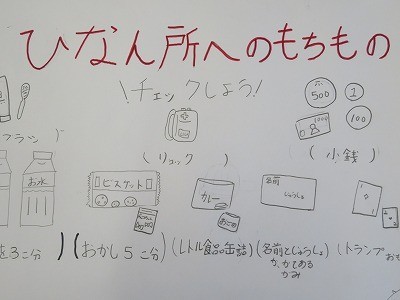 ひなん所へのもちもの
\チェックしよう!/
500 1
1000 100
ブラシ
(リュック)
(小銭)
お水
ビスケット
カレー
名前
じゅうしょ
を3こ分)
(おかし5こ分)
(レトルト食品缶詰)
(名前とじゅうしょ
がかいてある
かみ
(トランプ